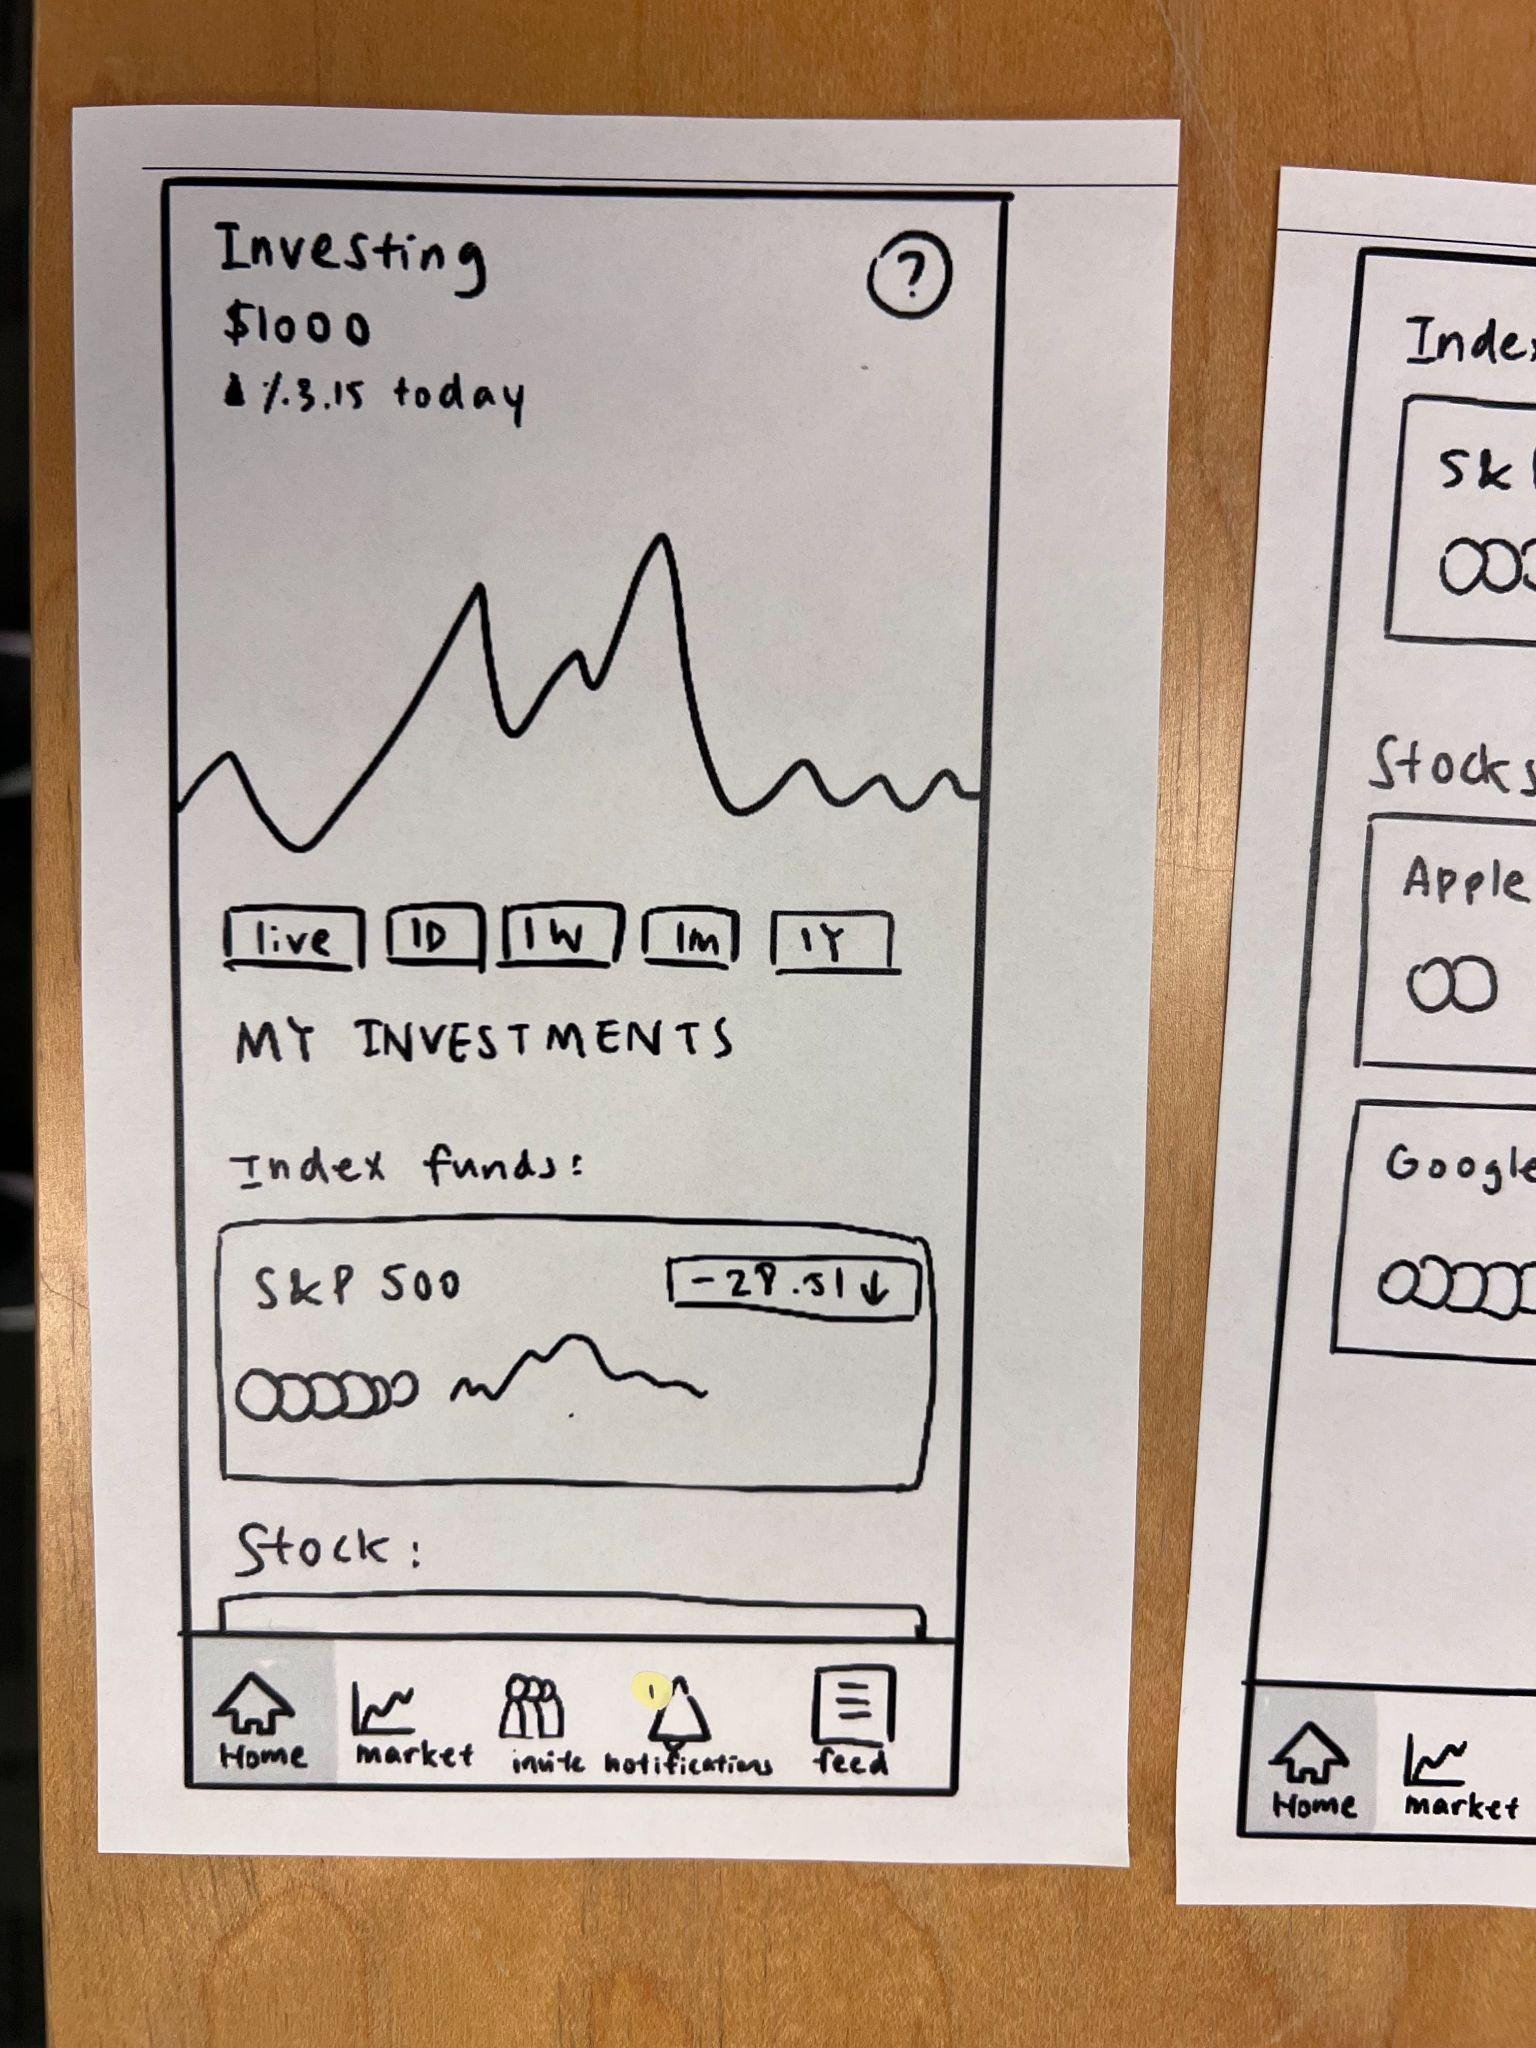 Investing
?
$1000
%.3.15 today
live 1D 1W 1m 1Y
MY INVESTMENTS
Index funds:
S&P 500
Stock:
1
Home market invite notifications feed
S&
Stocks
Apple
Google
Home market